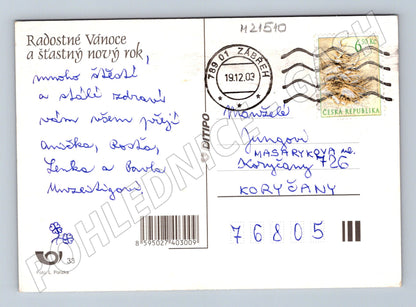 M21510
Radostné Vánoce
a šťastný nový rok,
mnoho štěstí
a stálé zdraví
vám všem přejí
Anička, Rosťa,
Lenka a Pavla
789 01 ZÁBŘEH
19.12.03
6,50 Kč
ČESKÁ REPUBLIKA
Manželé
Jungovi
MASARYKOVA
Koryčany 726
KORYČANY
76805
© DITIPO
8 595027 403009
33
Foto: L.
POHLEDNICE